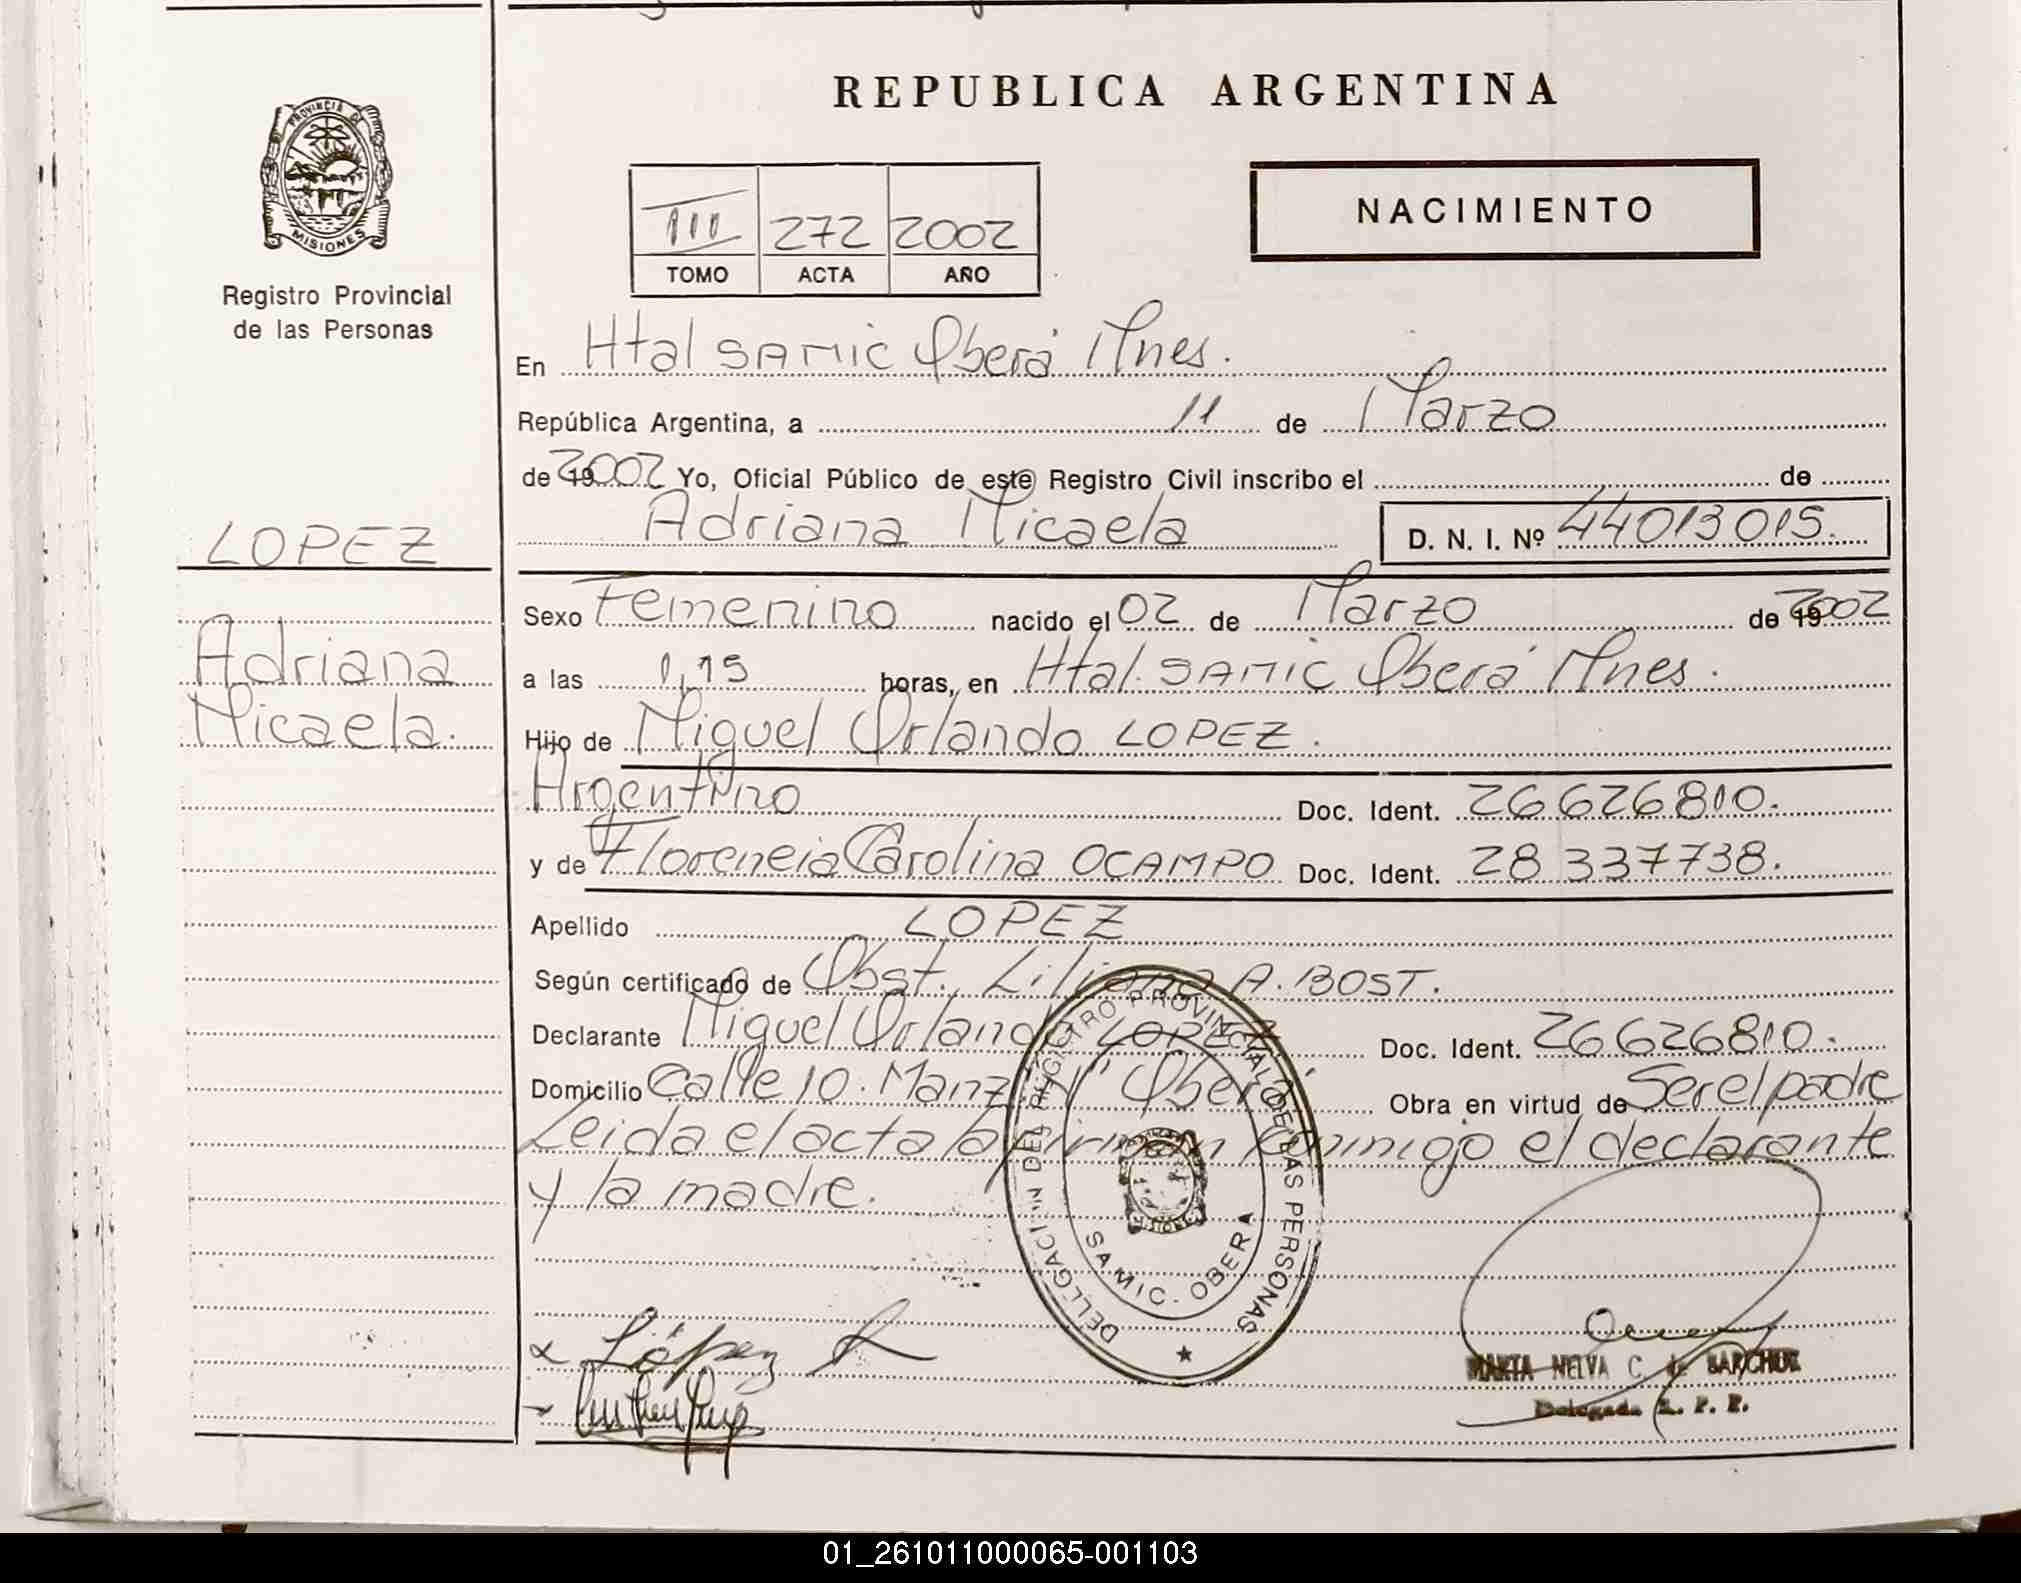 REPUBLICA ARGENTINA
PROVINCIA DE
MISIONES
Registro Provincial
de las Personas
III 272 2002
TOMO ACTA AÑO
NACIMIENTO
En Htal SAMIC Oberá Mnes.
República Argentina, a 11 de Marzo
de 19 2002 Yo, Oficial Público de este Registro Civil inscribo el de
Adriana Micaela D. N. I. Nº 44013015.
LOPEZ
Adriana
Micaela.
Sexo Femenino nacido el 02 de Marzo de 19 2002
a las 1,15 horas, en Htal. SAMIC Oberá Mnes.
Hijo de Miguel Orlando LOPEZ.
Argentino Doc. Ident. 26626810.
y de Florencia Carolina OCAMPO Doc. Ident. 28 337738.
Apellido LOPEZ
Según certificado de Obst. Liliana A. BOST.
Declarante Miguel Orlando LOPEZ Doc. Ident. 26626810.
Domicilio Calle 10. Manz "V" Oberá Obra en virtud de Ser el padre
Leida el acta la firman conmigo el declarante
y la madre.
DELEGACION DEL REGISTRO PROVINCIAL DE LAS PERSONAS
SAMIC - OBERA
López
MARTA NELVA C. de BARCHUK
Delegada R. P. P.
01_261011000065-001103